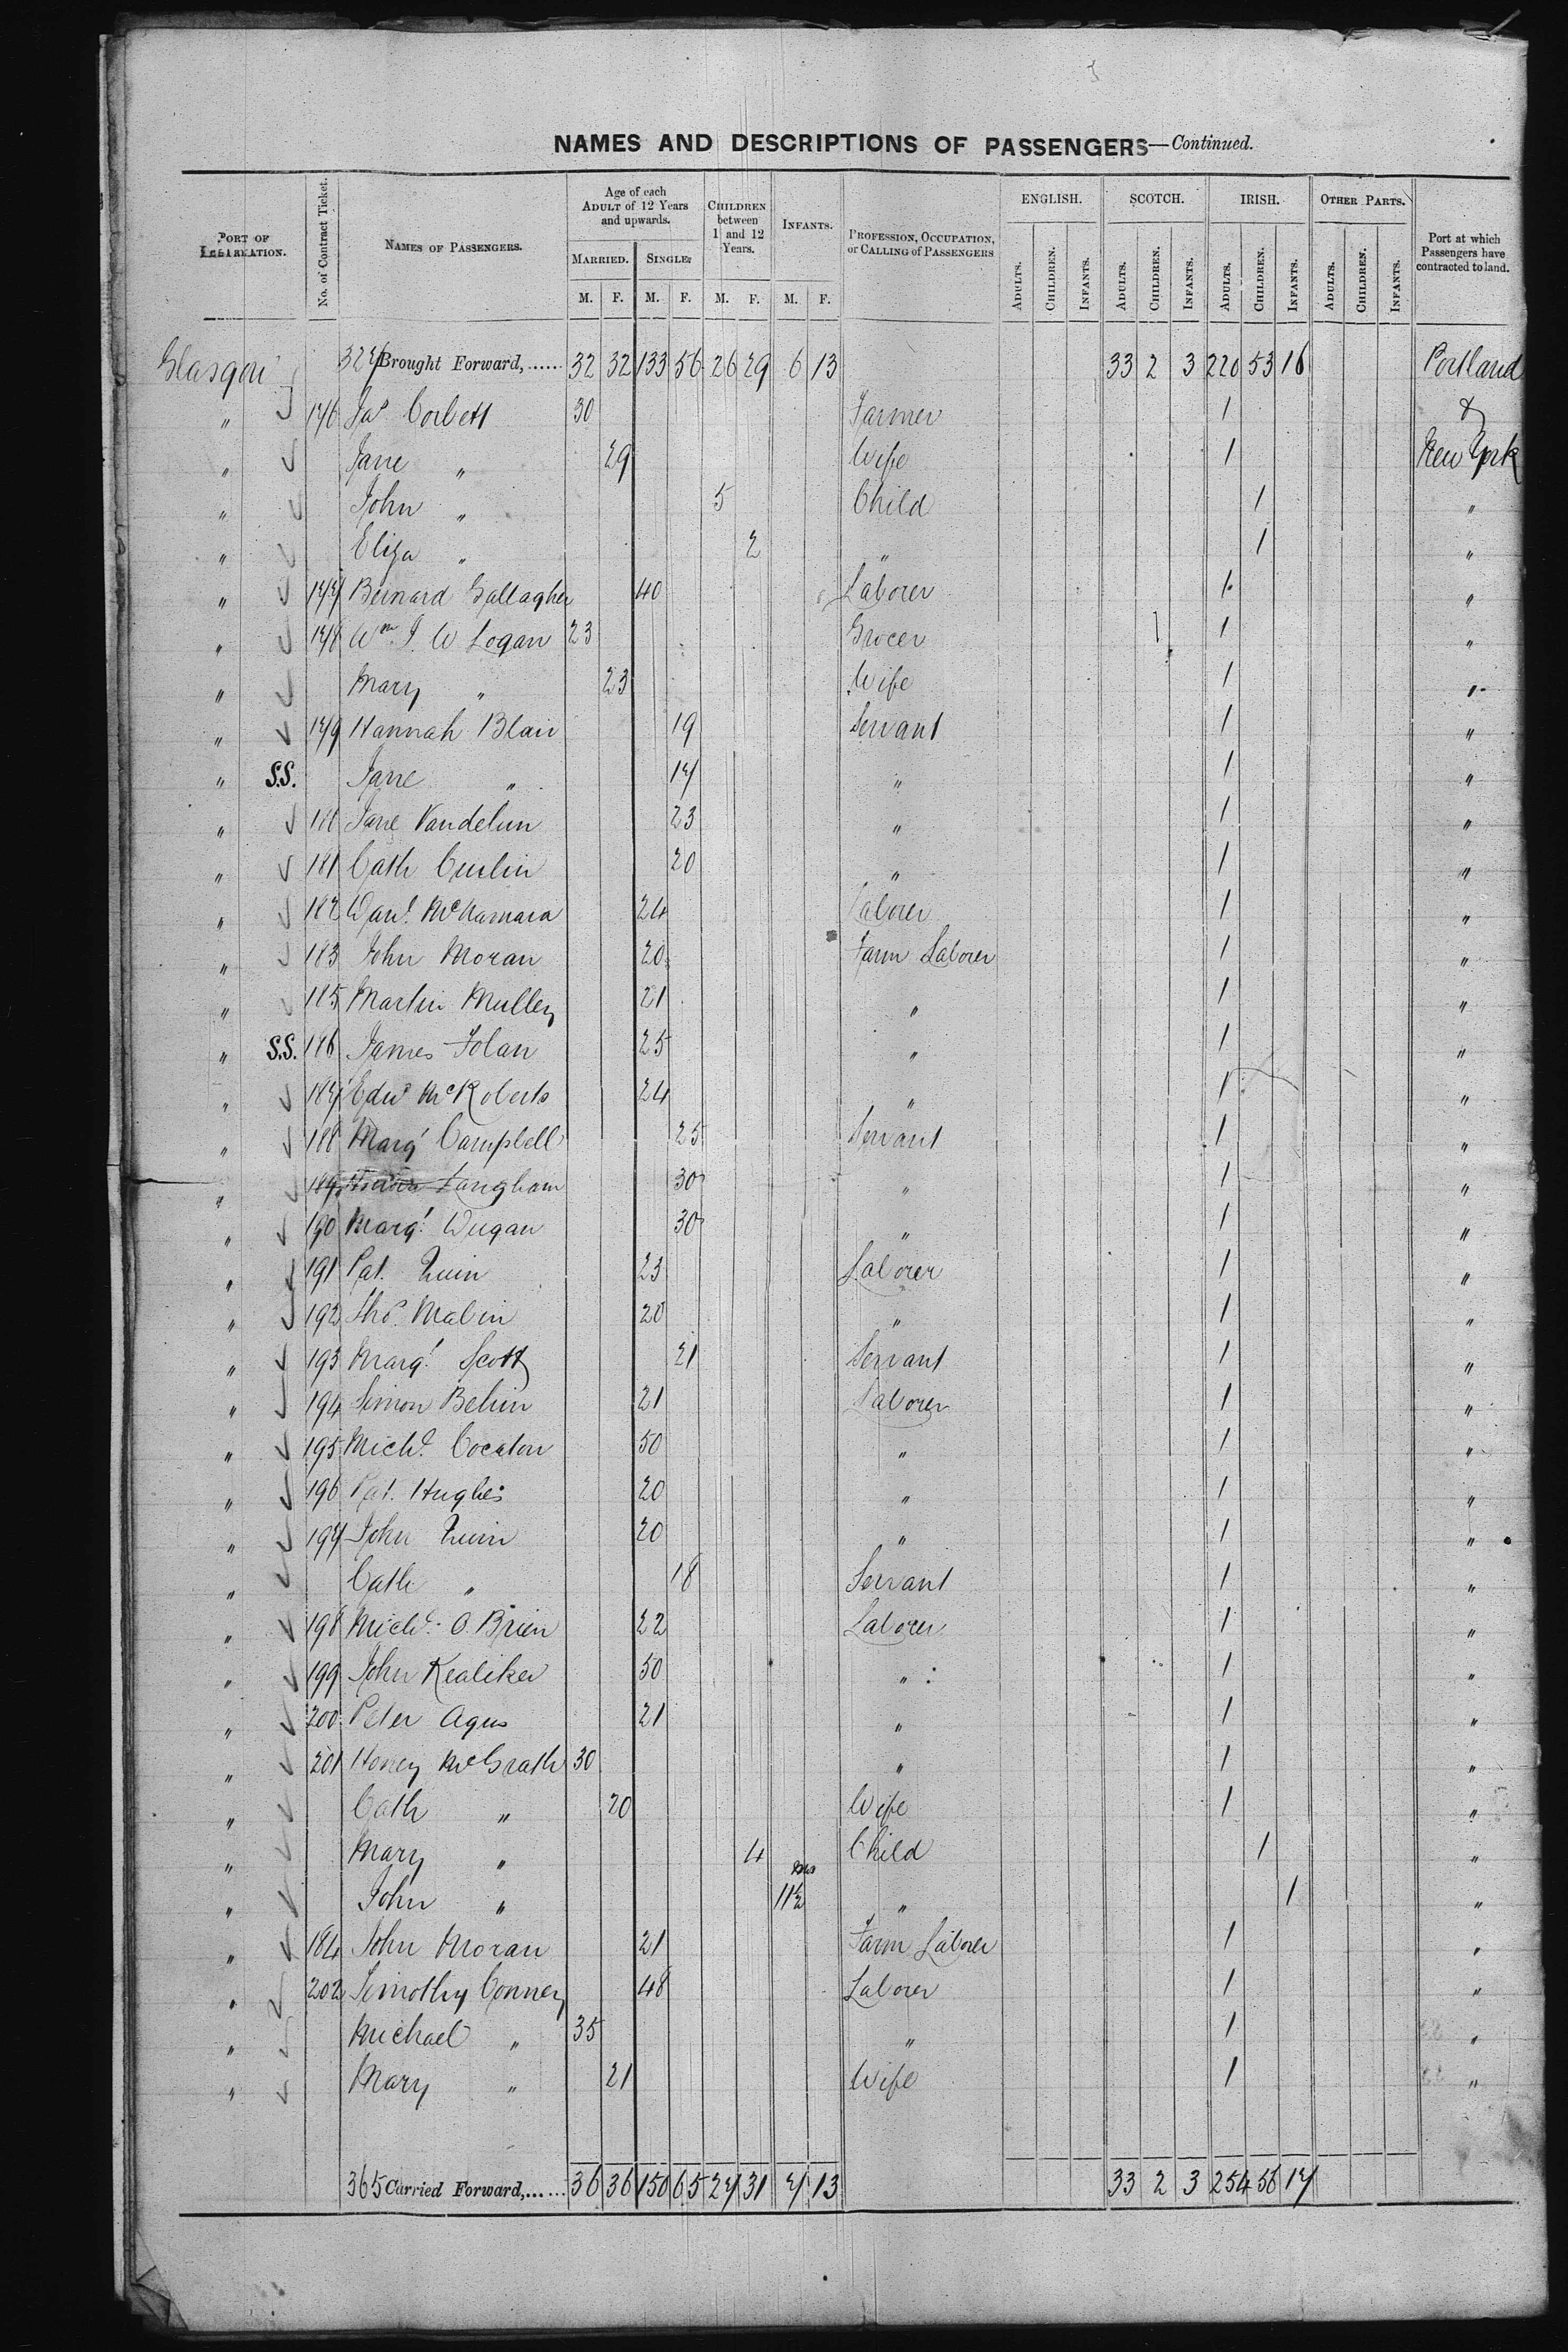 NAMES AND DESCRIPTIONS OF PASSENGERS—Continued.
PORT OF EMBARKATION. No. of Contract Ticket. NAMES OF PASSENGERS. Age of each ADULT of 12 Years and upwards. MARRIED. M. F. SINGLE. M. F. CHILDREN between 1 and 12 Years. M. F. INFANTS. M. F. PROFESSION, OCCUPATION, or CALLING of PASSENGERS ENGLISH. ADULTS. CHILDREN. INFANTS. SCOTCH. ADULTS. CHILDREN. INFANTS. IRISH. ADULTS. CHILDREN. INFANTS. OTHER PARTS. ADULTS. CHILDREN. INFANTS. Port at which Passengers have contracted to land.
Glasgow 327 Brought Forward,...... 32 32 133 56 26 29 6 13 33 2 3 220 53 16 Portland
" 176 Jas Corbett 30 Farmer 1 &
" Jane " 29 Wife 1 New York
" John " 5 Child 1 "
" Eliza " 2 " 1 "
" 177 Bernard Gallagher 40 Laborer 1 "
" 178 Wm J. W Logan 23 Grocer 1 "
" Mary " 23 Wife 1 "
" 179 Hannah Blair 19 Servant 1 "
" S.S. Jane " 17 " 1 "
" 180 Jane Vandelun 23 " 1 "
" 181 Cath 20 " 1 "
" 182 Danl McNamara 24 Laborer 1 "
" 183 John Moran 20 Farm Laborer 1 "
" 185 Martin Mulley 21 " 1 "
" S.S. 186 James Folan 25 " 1 "
" 187 Edwd McRoberts 24 " 1 "
" 188 Margt Campbell 25 Servant 1 "
" 189 Langham 30 " 1 "
" 190 Margt Dugan 30 " 1 "
" 191 Pat. Quin 23 Laborer 1 "
" 192 Thos. Mabin 20 " 1 "
" 193 Margt Scott 21 Servant 1 "
" 194 Simon Behin 21 Laborer 1 "
" 195 Michl. 50 " 1 "
" 196 Pat. Hughes 20 " 1 "
" 197 John Quin 20 " 1 "
" Cath " 18 Servant 1 "
" 198 Michl. O.Brien 22 Laborer 1 "
" 199 John Kealiker 50 " 1 "
" 200 Peter Agus 21 " 1 "
" 201 Honey McGrath 30 " 1 "
" Cath " 20 Wife 1 "
" Mary " 4 Child 1 "
" John " 11½ mos " 1 "
" 184 John Moran 21 Farm Laborer 1 "
" 202 Timothy Conney 48 Laborer 1 "
" Michael " 35 " 1 "
" Mary " 21 Wife 1 "
365 Carried Forward,...... 36 36 150 65 27 31 7 13 33 2 3 254 56 17